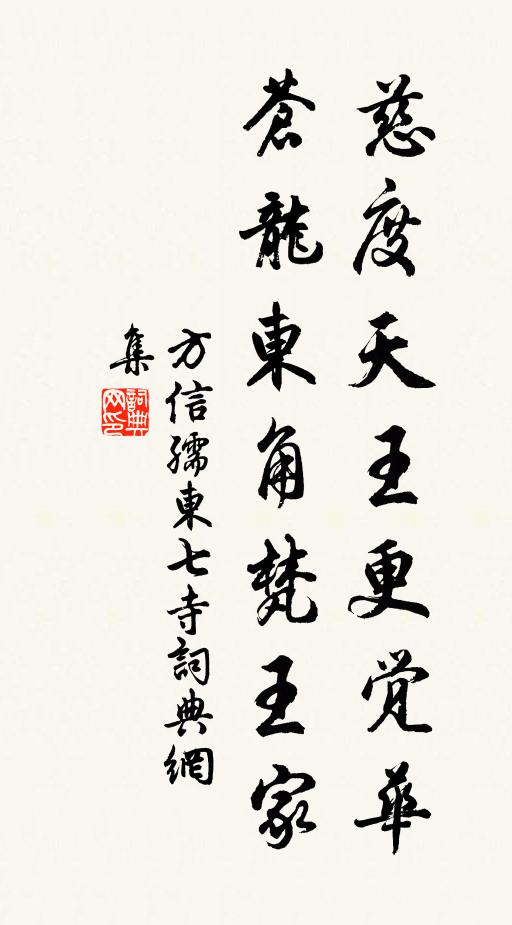 慈度天王更觉華
蒼龍東角梵王家
方信孺東七寺詞典網
集
詞典网印